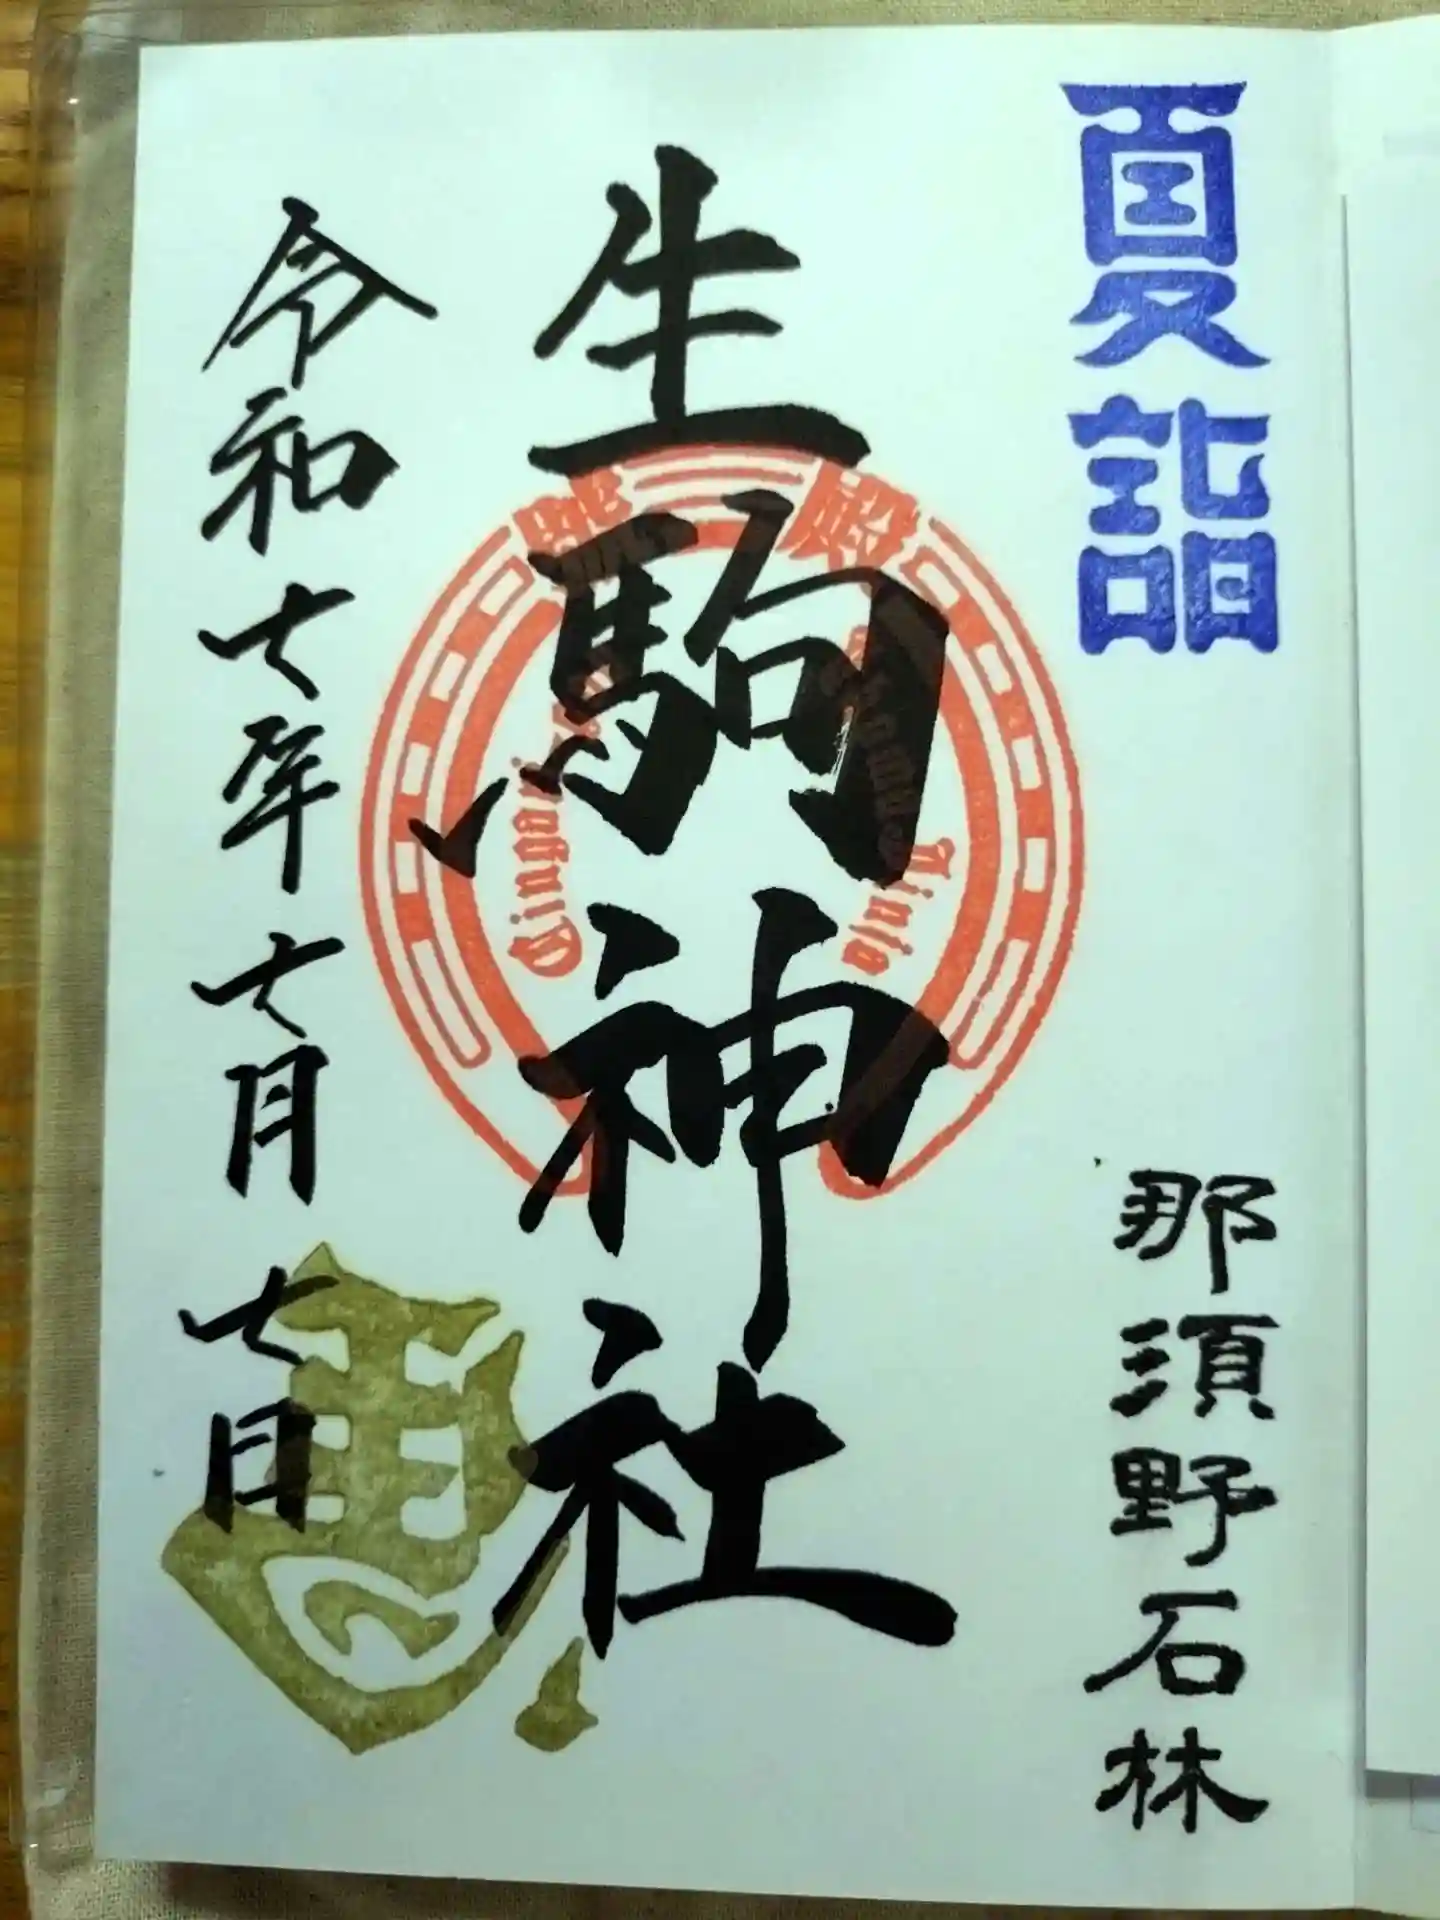 夏詣
那須野石林
生駒神社
殿
Jinja
令和七年七月七日